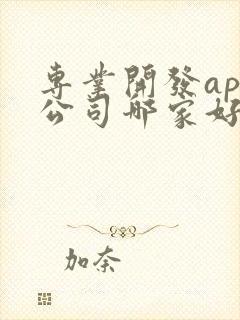 專業開發ap
公司哪家好
加奈